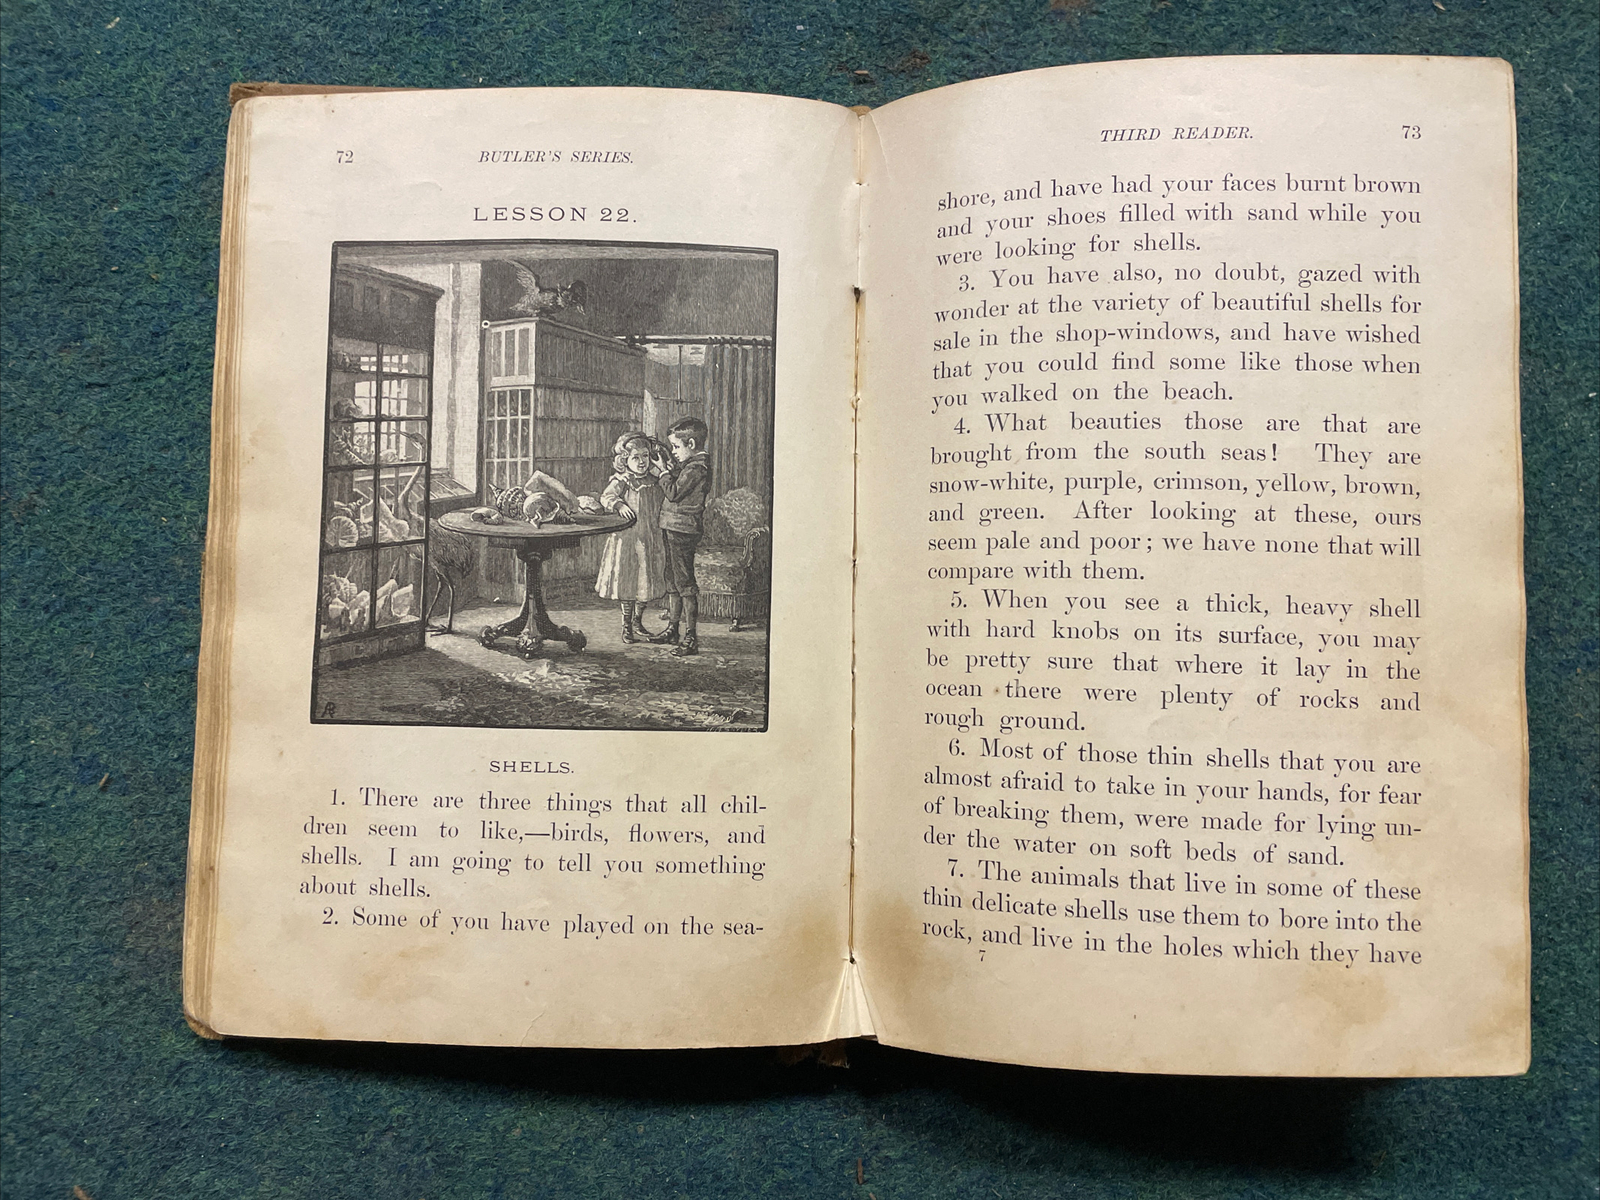 72
BUTLER'S SERIES.
LESSON 22.
SHELLS.
1. There are three things that all chil-
dren seem to like,—birds, flowers, and
shells. I am going to tell you something
about shells.
2. Some of you have played on the sea-
THIRD READER.
73
shore, and have had your faces burnt brown
and your shoes filled with sand while you
were looking for shells.
3. You have also, no doubt, gazed with
wonder at the variety of beautiful shells for
sale in the shop-windows, and have wished
that you could find some like those when
you walked on the beach.
4. What beauties those are that are
brought from the south seas! They are
snow-white, purple, crimson, yellow, brown,
and green. After looking at these, ours
seem pale and poor; we have none that will
compare with them.
5. When you see a thick, heavy shell
with hard knobs on its surface, you may
be pretty sure that where it lay in the
ocean there were plenty of rocks and
rough ground.
6. Most of those thin shells that you are
almost afraid to take in your hands, for fear
of breaking them, were made for lying un-
der the water on soft beds of sand.
7. The animals that live in some of these
thin delicate shells use them to bore into the
rock, and live in the holes which they have
7